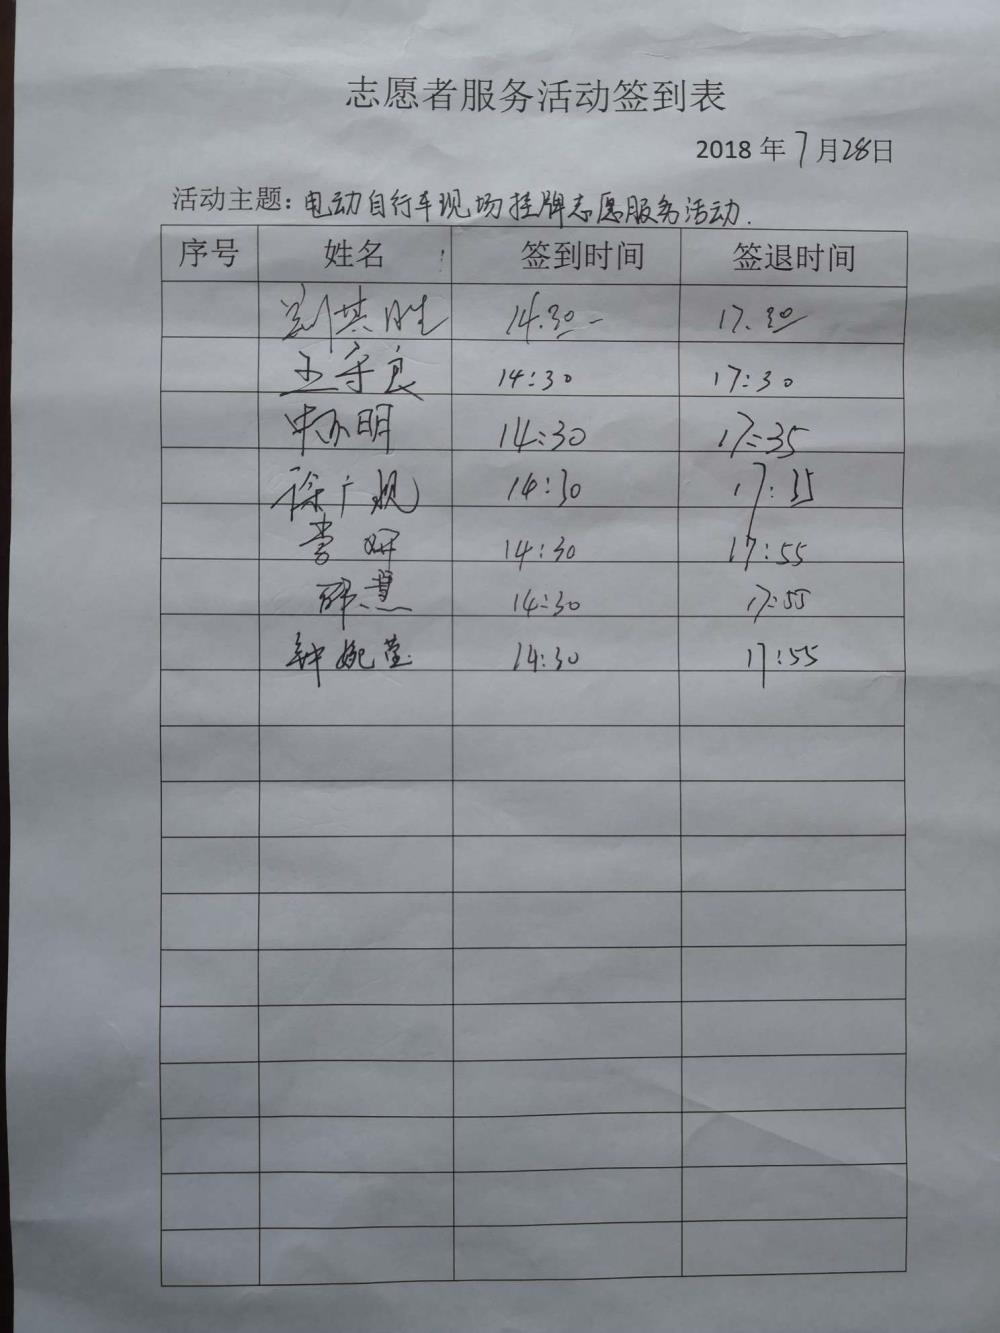 志愿者服务活动签到表
2018 年 7 月 28 日
活动主题: 电动自行车现场挂牌志愿服务活动.
序号 姓名 签到时间 签退时间
刘其胜 14.30 17.30
王守良 14:30 17:30
明 14:30 17:35
徐广 14:30 17:35
14:30 17:55
韩慧 14:30 17:55
钟婉莹 14:30 17:55